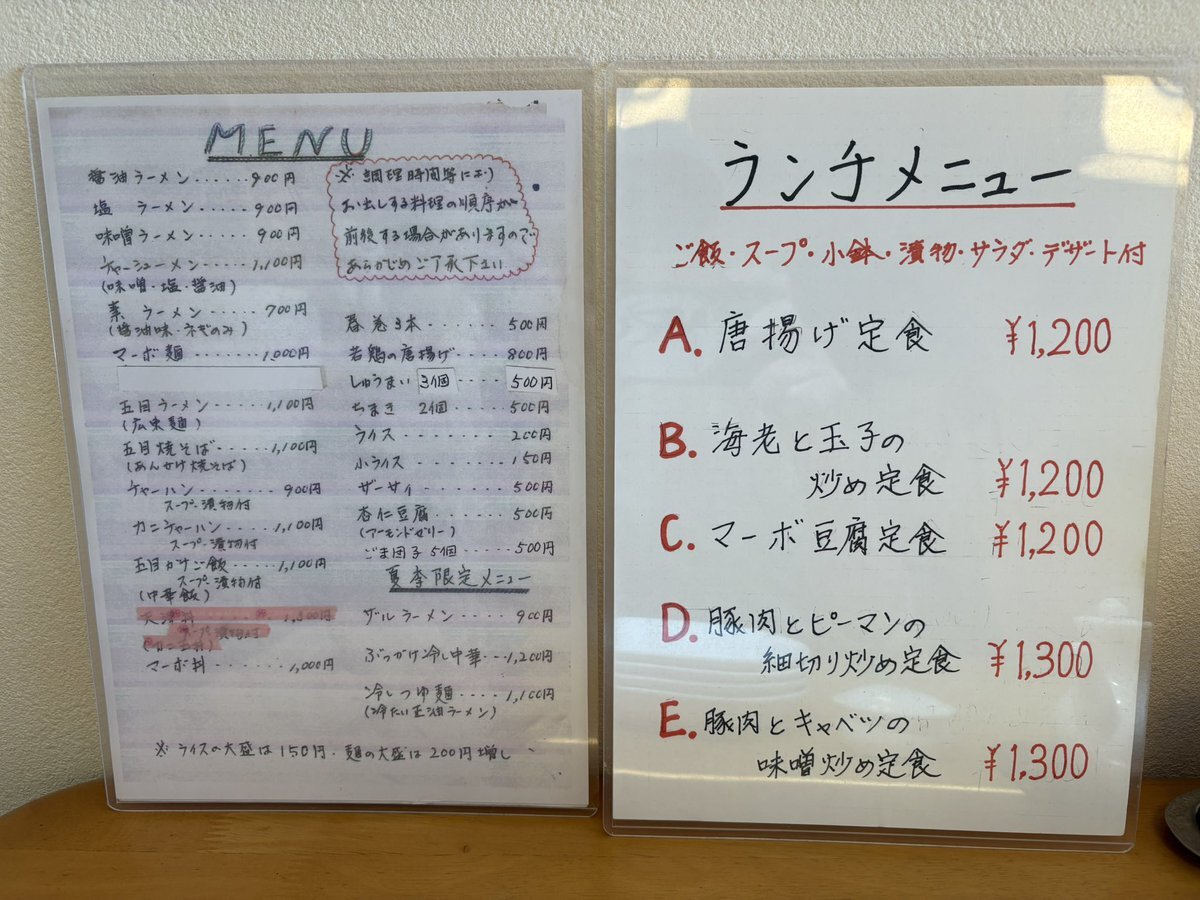 MENU
醤油ラーメン......900円
塩 ラーメン.....900円
味噌ラーメン.....900円
チャーシューメン....1,100円
(味噌・塩・醤油)
素 ラーメン.....700円
(醤油味・ネギのみ)
マーボ麺.......1,000円
五目ラーメン.....1,100円
(広東麺)
五目焼そば......1,100円
(あんかけ焼そば)
チャーハン.......900円
スープ・漬物付
カニチャーハン.....1,100円
スープ・漬物付
五目かけご飯.....1,100円
スープ・漬物付
(中華飯)
スープ 漬物付
マーボ丼.......1,000円
※ 調理時間等により
お出しする料理の順序が
前後する場合がありますので
あらかじめご了承下さい
春巻3本.......500円
若鶏の唐揚げ.....800円
しゅうまい 3個....500円
ちまき 2個......500円
ライス........200円
小ライス.......150円
ザーサイ.......500円
杏仁豆腐.......500円
(アーモンドゼリー)
ごま団子5個.....500円
夏季限定メニュー
ザルラーメン.....900円
ぶっかけ冷し中華...1,200円
冷しつゆ麺....1,100円
(冷たい正油ラーメン)
※ライスの大盛は150円・麺の大盛は200円増し
ランチメニュー
ご飯・スープ・小鉢・漬物・サラダ・デザート付
A. 唐揚げ定食 ¥1,200
B. 海老と玉子の
炒め定食 ¥1,200
C. マーボ豆腐定食 ¥1,200
D. 豚肉とピーマンの
細切り炒め定食 ¥1,300
E. 豚肉とキャベツの
味噌炒め定食 ¥1,300